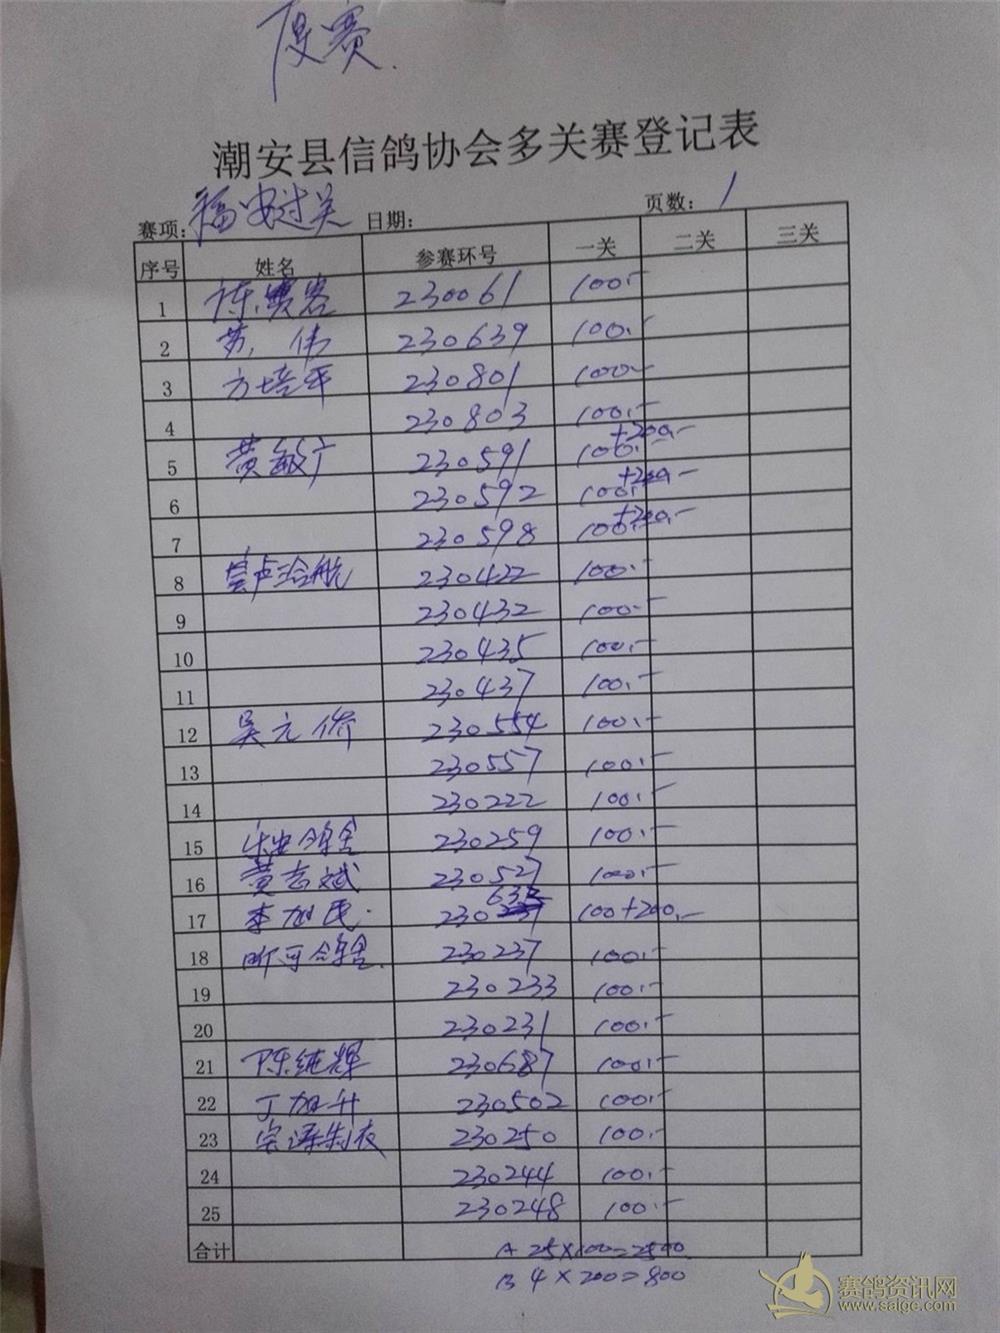 复赛.
潮安县信鸽协会多关赛登记表
赛项: 福安过关 日期: 页数: 1
序号 姓名 参赛环号 一关 二关 三关
1 陈 230061 100.-
2 苏 伟 230639 100.-
3 方培年 230801 100.-
4 230803 100.-
5 黄敏广 230591 100.-+200.-
6 230592 100.-+200.-
7 230598 100.-+200.-
8 230422 100.-
9 230432 100.-
10 230435 100.-
11 230437 100.-
12 吴元侨 230554 100.-
13 230557 100.-
14 230222 100.-
15 鸽舍 230259 100.-
16 黄志斌 230527 100.-
17 李加民. 230633 100+200.-
18 昕可鸽舍. 230237 100.-
19 230233 100.-
20 230231 100.-
21 陈纯辉 230687 100.-
22 丁加升 230502 100.-
23 制衣 230250 100.-
24 230244 100.-
25 230248 100.-
合计 A 25×100=2500
B 4×200=800
赛鸽资讯网
www.saige.com